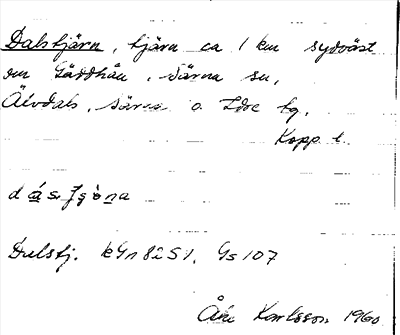 Dalstjärn, tjärn ca 1 km sydväst
om Gäddhån, Särna sn,
Älvdals, Särna o. Idre tg.
Kopp. l.
Dalstj. kGn82S1. Gs107
Åke Karlsson 1960